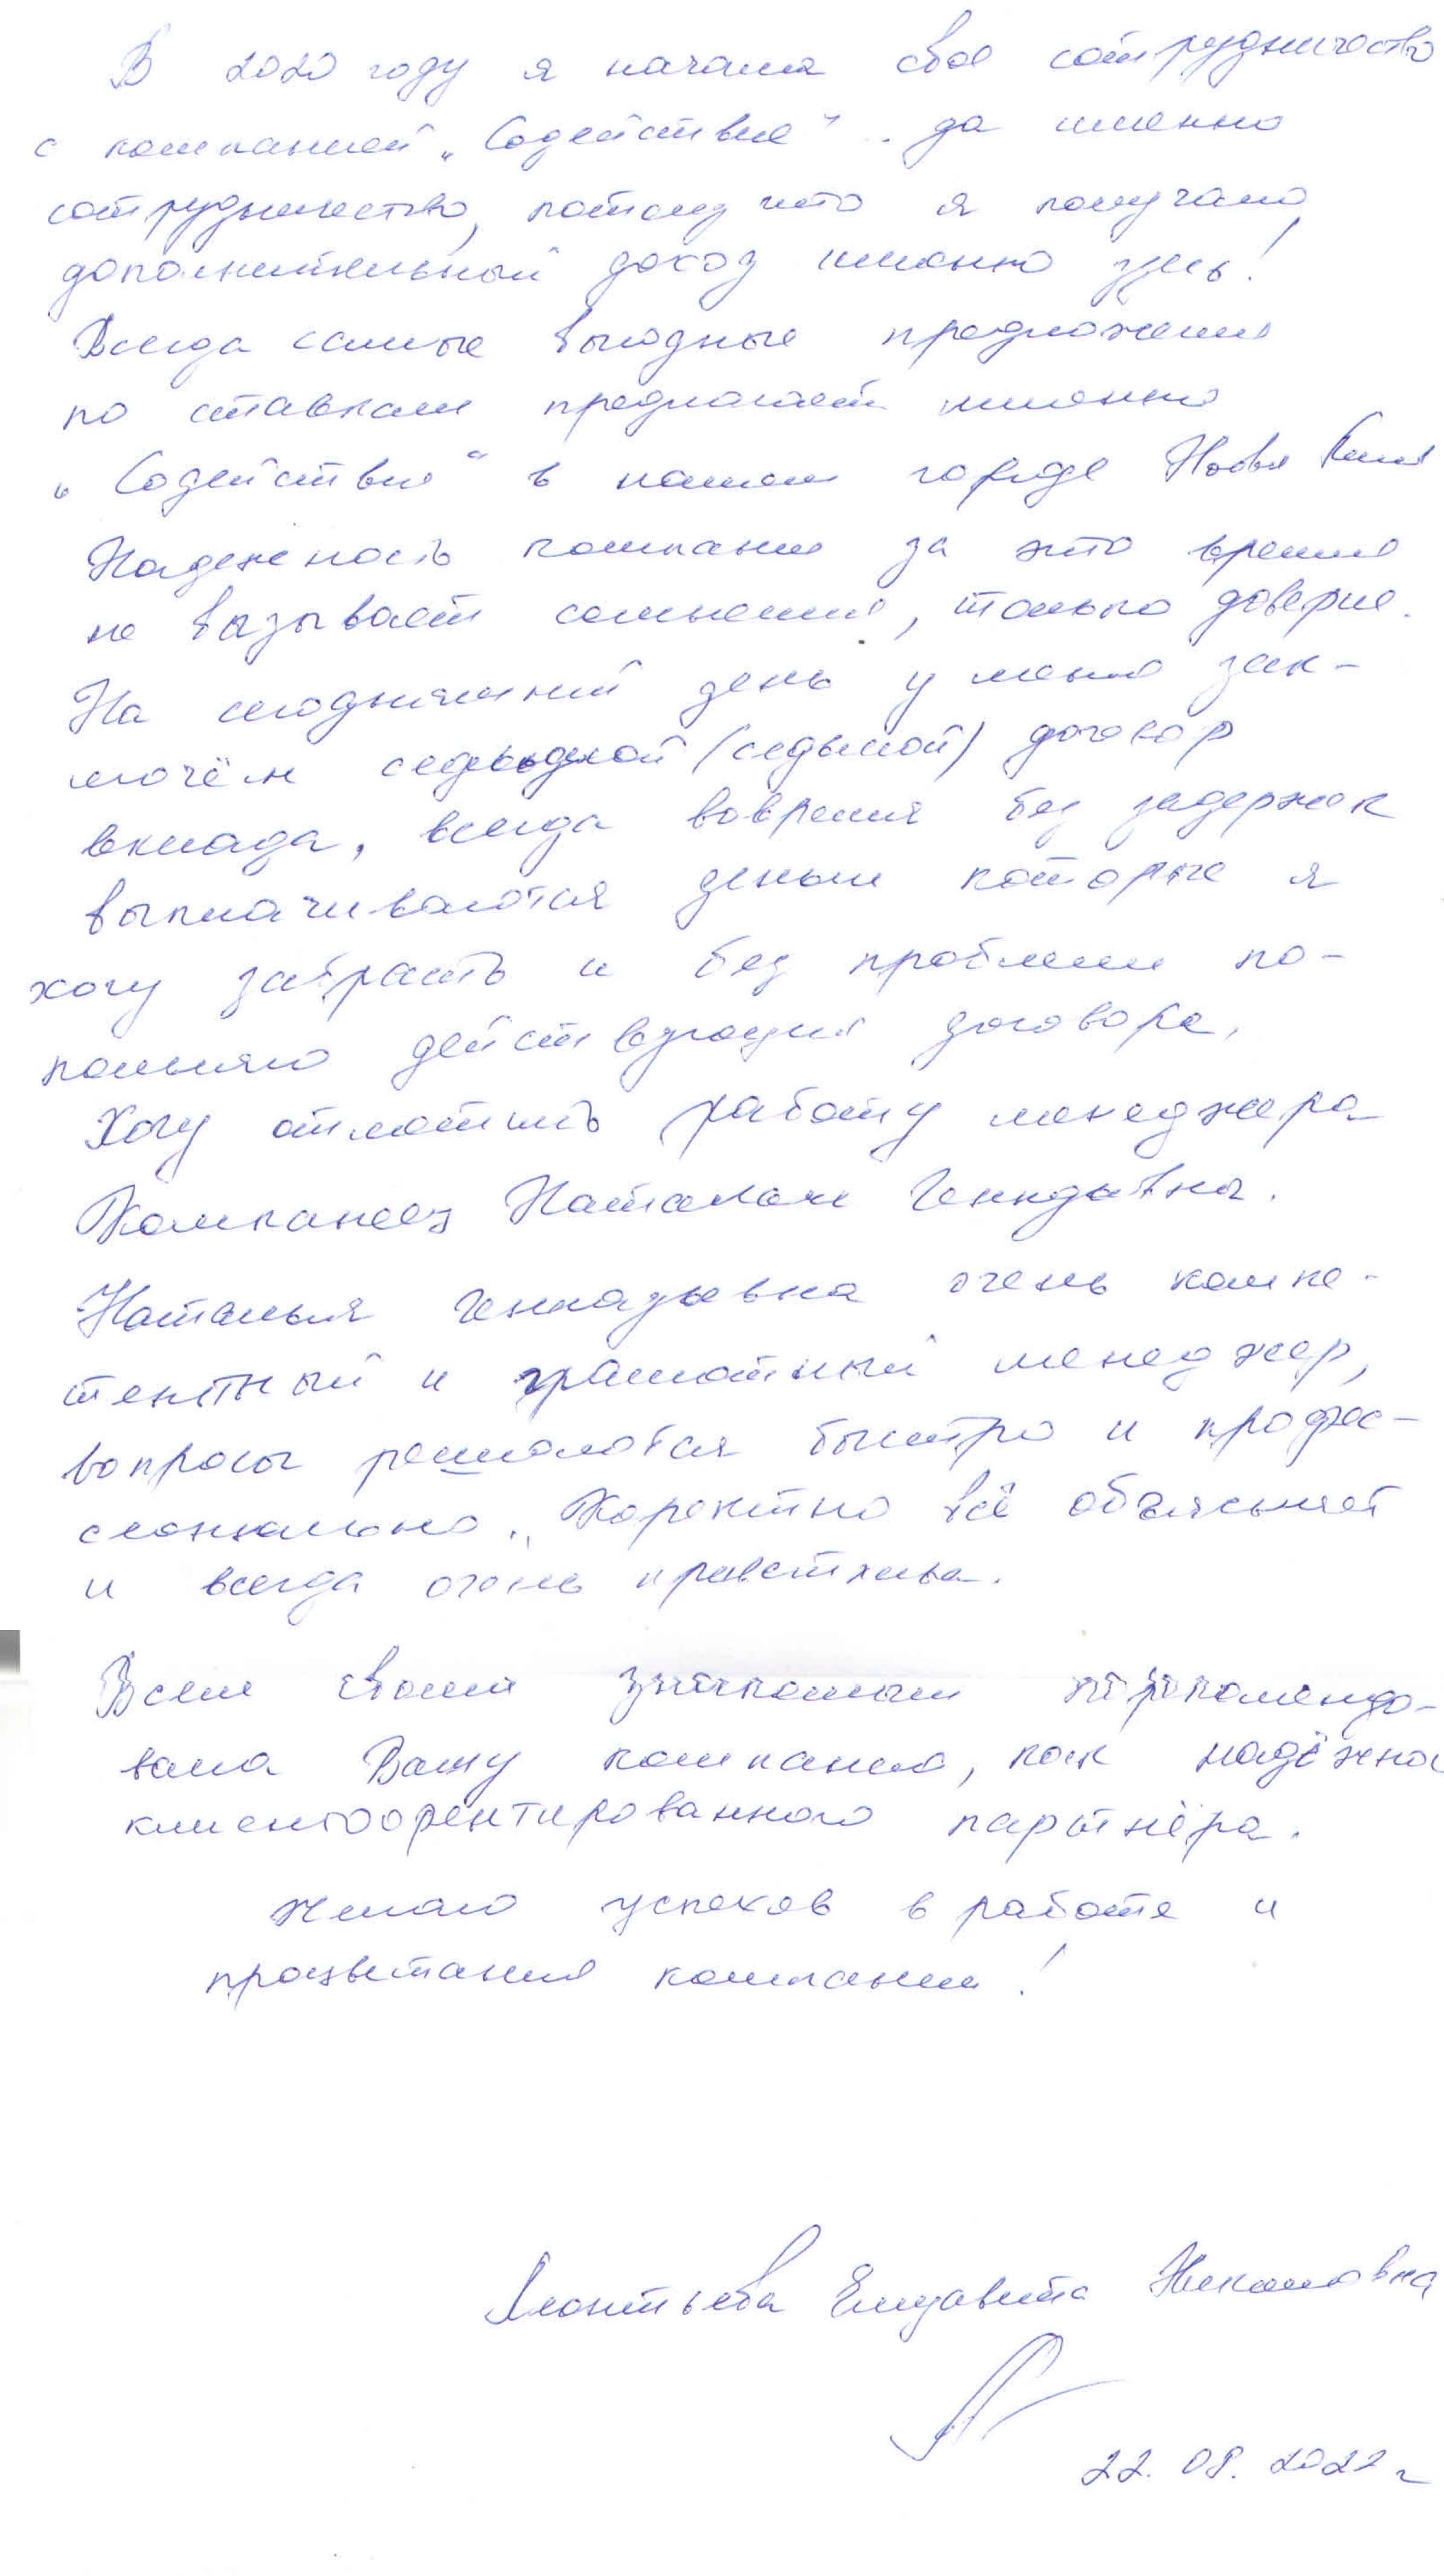 В 2020 году я начала свое сотрудничество
с компанией „Содействие" .. да именно
сотрудничество, потому что я получаю
дополнительный доход именно здесь!
Всегда самые выгодные предложения
по ставкам предлагает именно
„Содействие" в нашем городе
Надежность компании за это время
не вызывает сомнения, только доверие.
На сегодняшний день у меня зак-
лючён (седьмой) договор
вклада, всегда вовремя без задержек
выплачиваются деньги которые я
хочу забрать и без проблем по-
полняю действующие договора.
Хочу отметить работу менеджера
Компанеец Наталью
Наталья Геннадьевна очень компе-
тентный и грамотный менеджер,
вопросы решаются быстро и профес-
сионально. Коректно всё объясняет
и всегда очень приветлива.
Всем своим знакомым порекомендо-
вала Вашу компанию, как надёжного
клиентоорентированного партнёра.
Желаю успехов в работе и
процветания компании!
Леонтьева Елизавета
22. 08. 2022 г